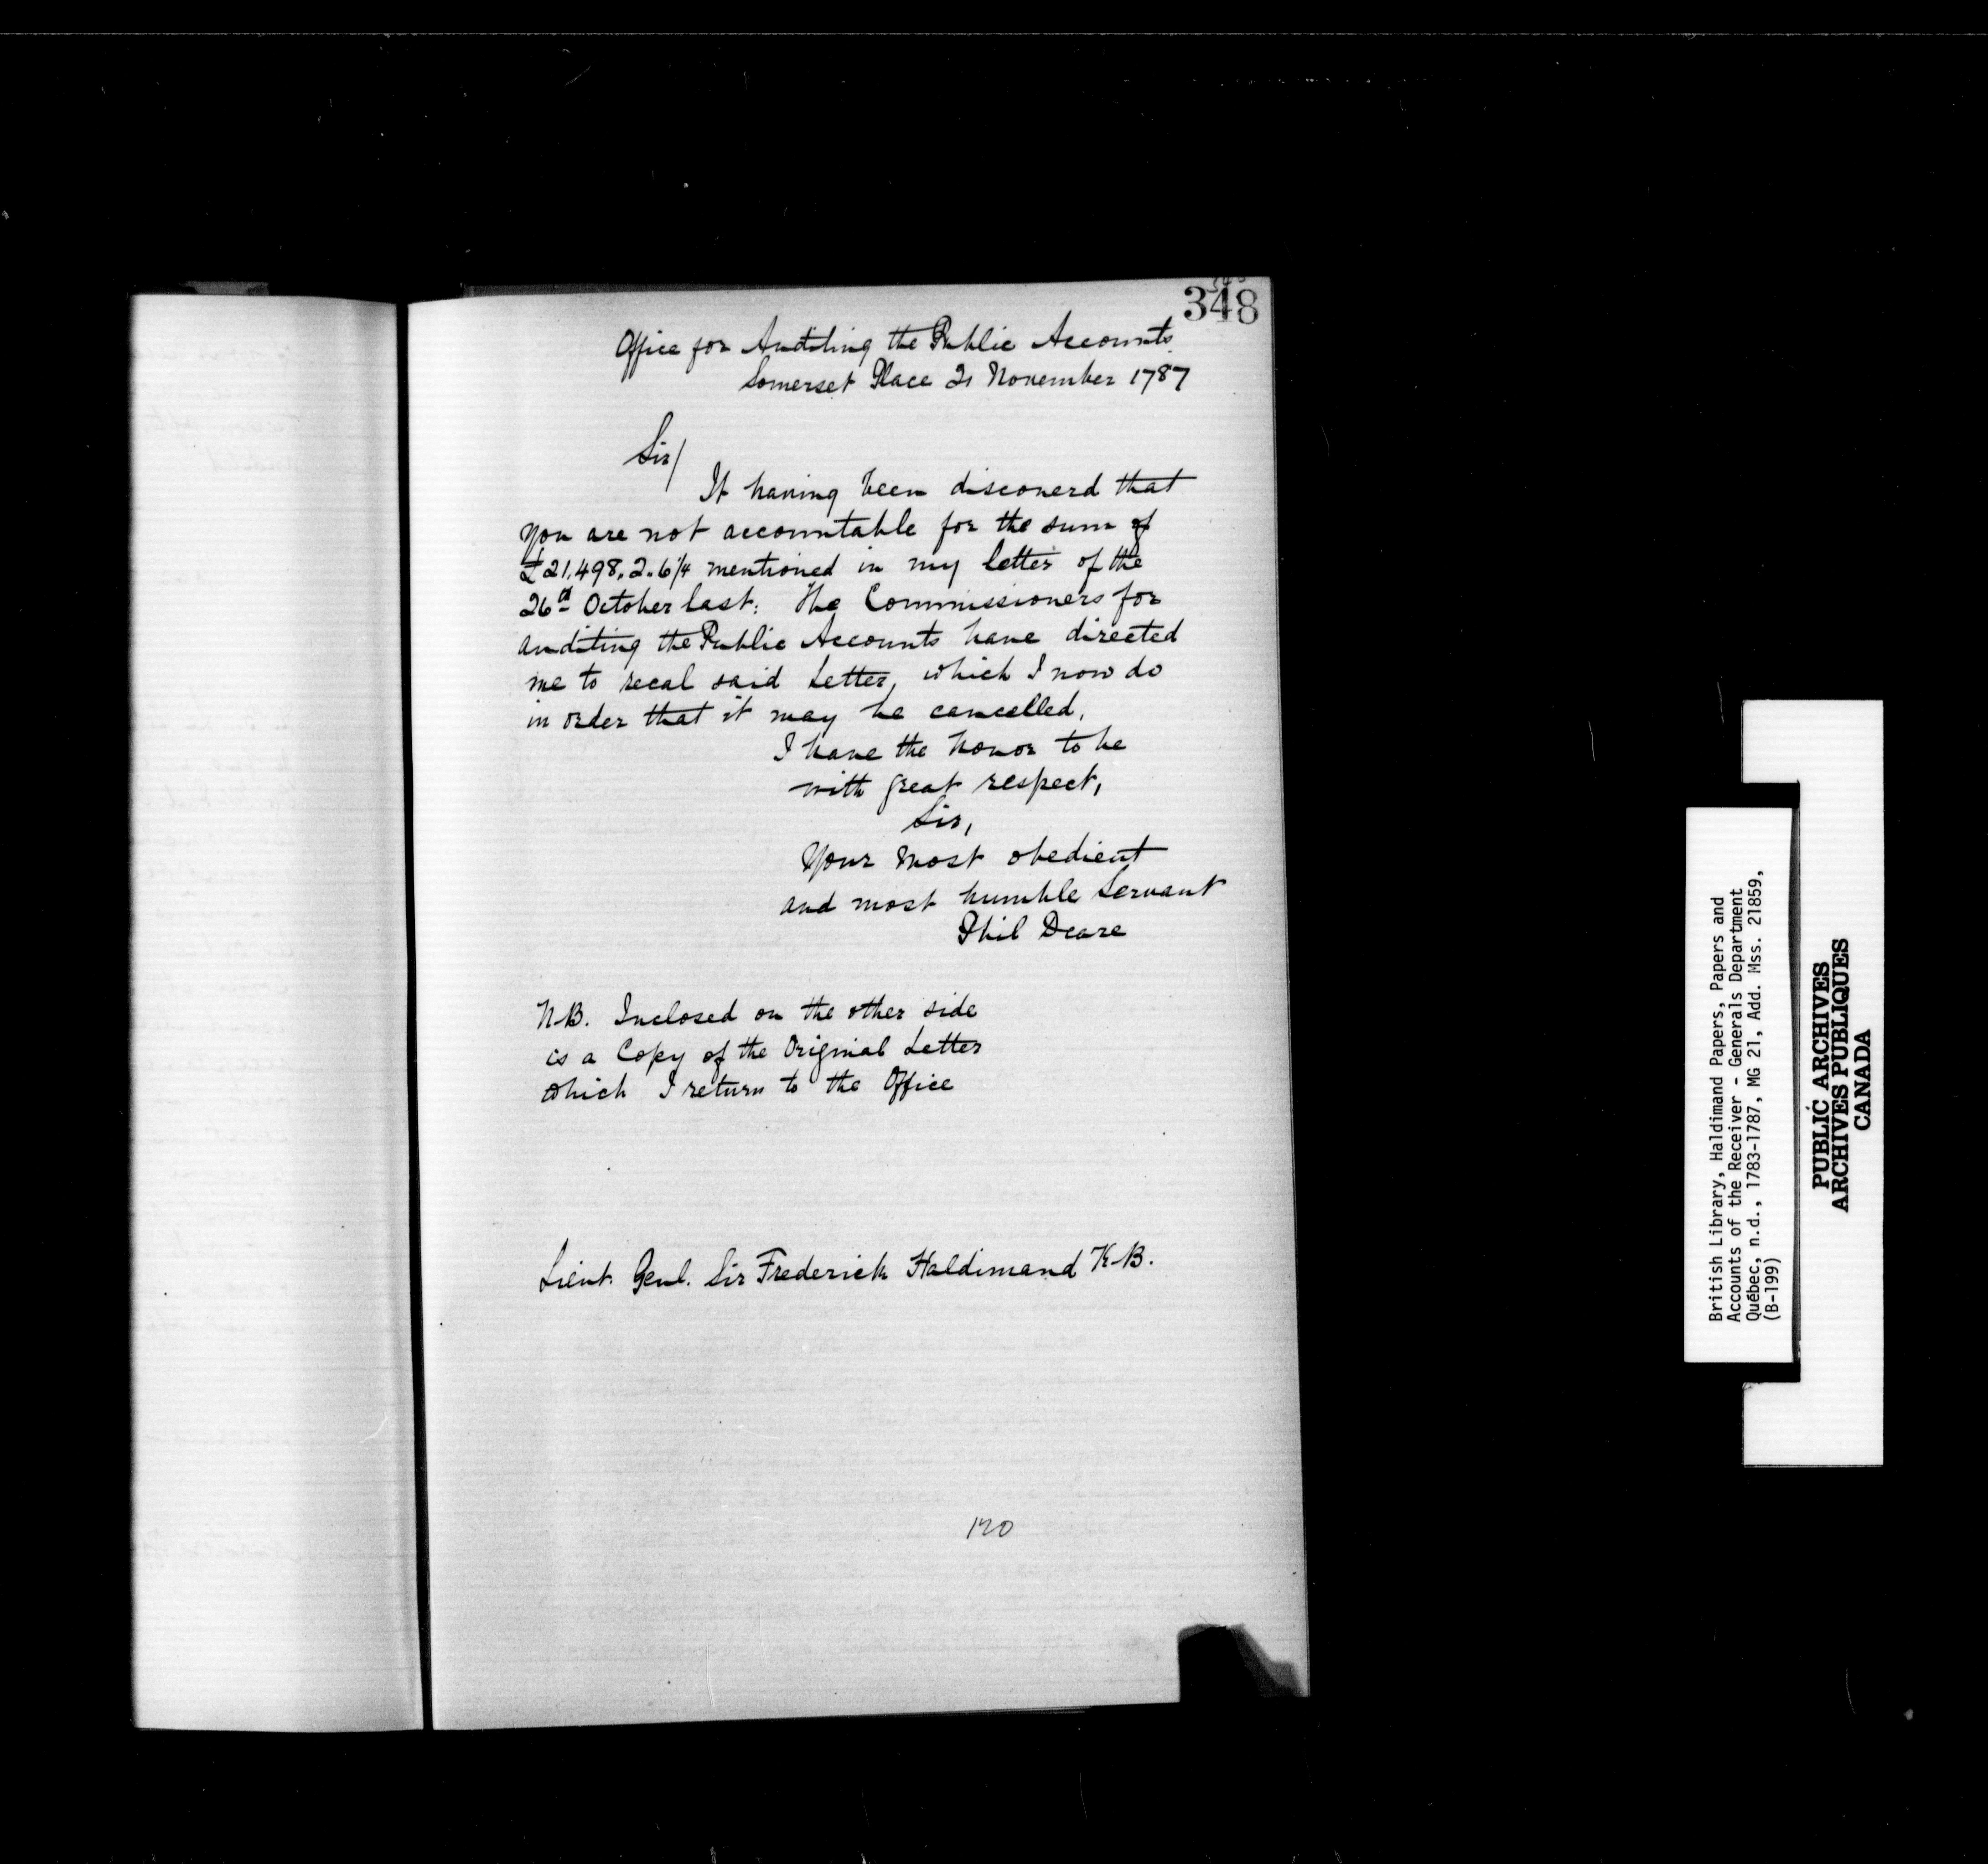 348
Office for Auditing the Public Accounts
Somerset Place 21 November 1787
Sir/
It having been discoverd that
you are not accountable for the sum of
£21,498.2.6¼ mentioned in my letter of the
26th October last: The Commissioners for
auditing the Public Accounts have directed
me to recal said Letter, which I now do
in order that it may be cancelled,
I have the honor to be
with great respect,
Sir,
Your most obedient
and most humble Servant
Phil Deare
N.B. Inclosed on the other side
is a Copy of the Original Letter
which I return to the Office
Lieut. Genl. Sir Frederick Haldimand K.B.
120
British Library, Haldimand Papers, Papers and
Accounts of the Receiver - Generals Department
Québec, n.d., 1783-1787, MG 21, Add. Mss. 21859,
(B-199)
PUBLIC ARCHIVES
ARCHIVES PUBLIQUES
CANADA